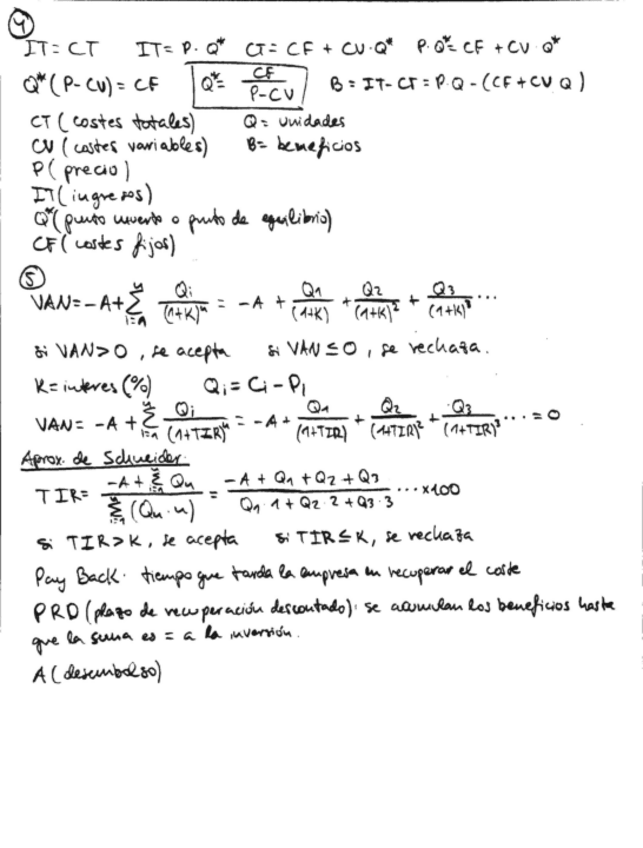 4
IT = CT IT = P · Q* CT = CF + CV · Q* P · Q* = CF + CV · Q*
Q* (P - CV) = CF Q* = CF / P - CV B = IT - CT = P · Q - (CF + CV Q)
CT (costes totales) Q = unidades
CV (costes variables) B = beneficios
P (precio)
IT (ingresos)
Q* (punto muerto o punto de equilibrio)
CF (costes fijos)
5
VAN = -A + n Σ i=1 Qi / (1+K)^n = -A + Q1 / (1+K) + Q2 / (1+K)² + Q3 / (1+K)³ ...
si VAN > 0, se acepta si VAN ≤ 0, se rechaza.
K = interes (%) Qi = Ci - Pi
VAN = -A + n Σ i=1 Qi / (1+TIR)^n = -A + Q1 / (1+TIR) + Q2 / (1+TIR)² + Q3 / (1+TIR)³ ... = 0
Aprox. de Schneider.
TIR = -A + n Σ i=1 Qn / n Σ i=1 (Qn · n) = -A + Q1 + Q2 + Q3 / Q1 · 1 + Q2 · 2 + Q3 · 3 ... x100
si TIR > K, se acepta si TIR ≤ K, se rechaza
Pay Back · tiempo que tarda la empresa en recuperar el coste
PRD (plazo de recuperación descontado): se acumulan los beneficios hasta
que la suma es = a la inversión.
A (desembolso)